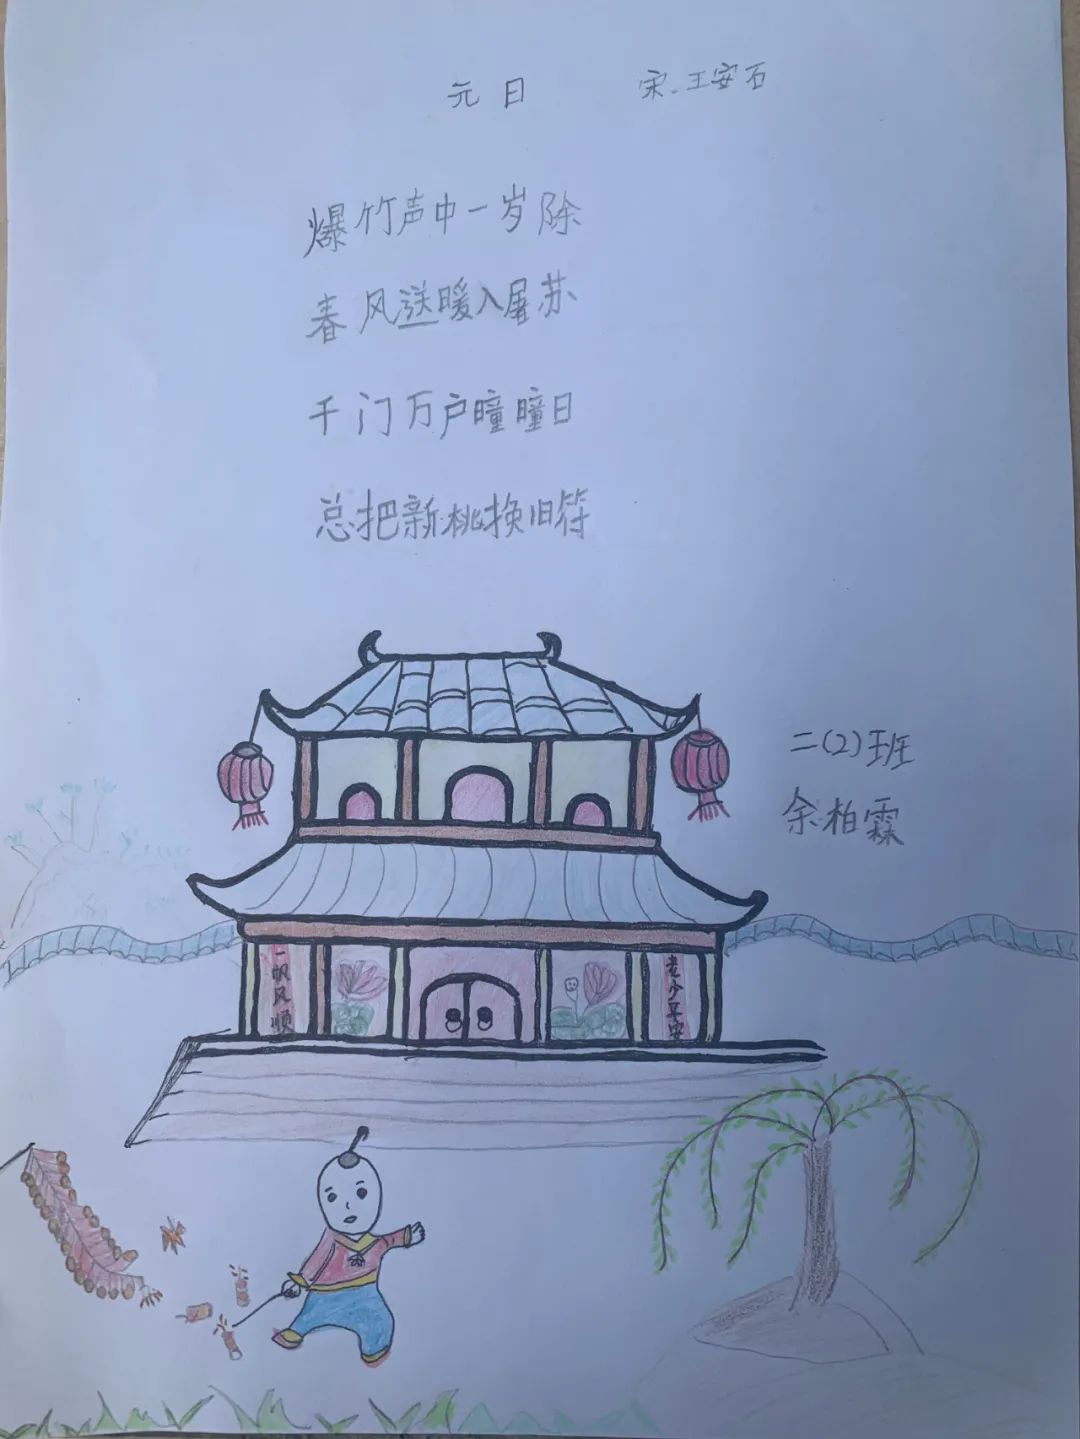 元日 宋.王安石
爆竹声中一岁除
春风送暖入屠苏
千门万户曈曈日
总把新桃换旧符
二(2)班
余柏霖
一帆风顺
老少平安